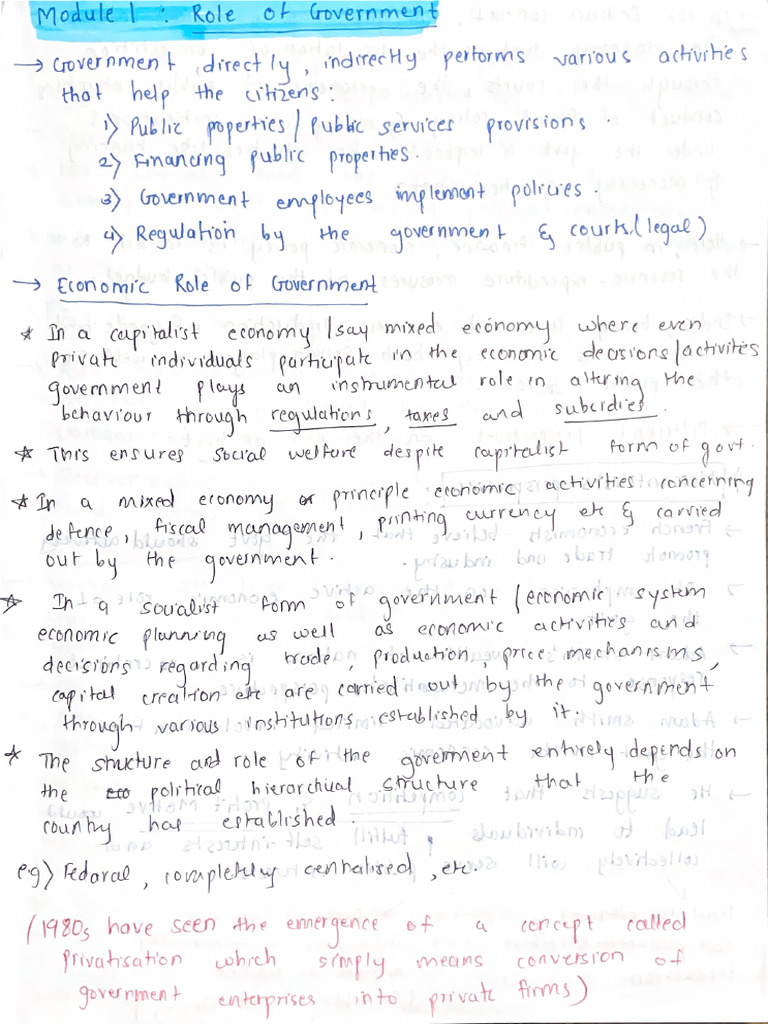 Module 1 : Role of Government
→ Government, directly, indirectly performs various activities
that help the citizens:
1) Public poperties/Public services provisions.
2) Financing public properties.
3) Government employees implement policies.
4) Regulation by the government & courts.(legal)
→ Economic Role of Government
* In a capitalist economy/say mixed economy where even
private individuals participate in the economic decisions/activites
government plays an instrumental role in altering the
behaviour through regulations, taxes and subsidies.
* This ensures social welfare despite capitalist form of govt.
* In a mixed economy principle economic activities concerning
defence, fiscal management, printing currency etc & carried
out by the government.
* In a socialist form of government/economic system
economic planning as well as economic activities and
decisions regarding trade, production, price mechanisms,
capital creation etc are carried out by the government
through various institutions established by it.
* The structure and role of the government entirely depends on
the political hierarchical structure that the
country has established.
eg) Fedaral, completely centralised, etc.
(1980s have seen the emergence of a concept called
privatisation which simply means conversion of
government enterprises into private firms)